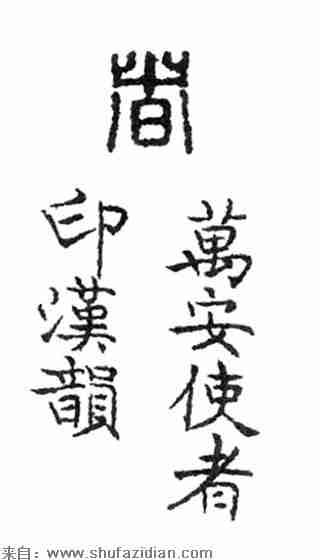 萬安使者
印漢韻
来自：www.shufazidian.com